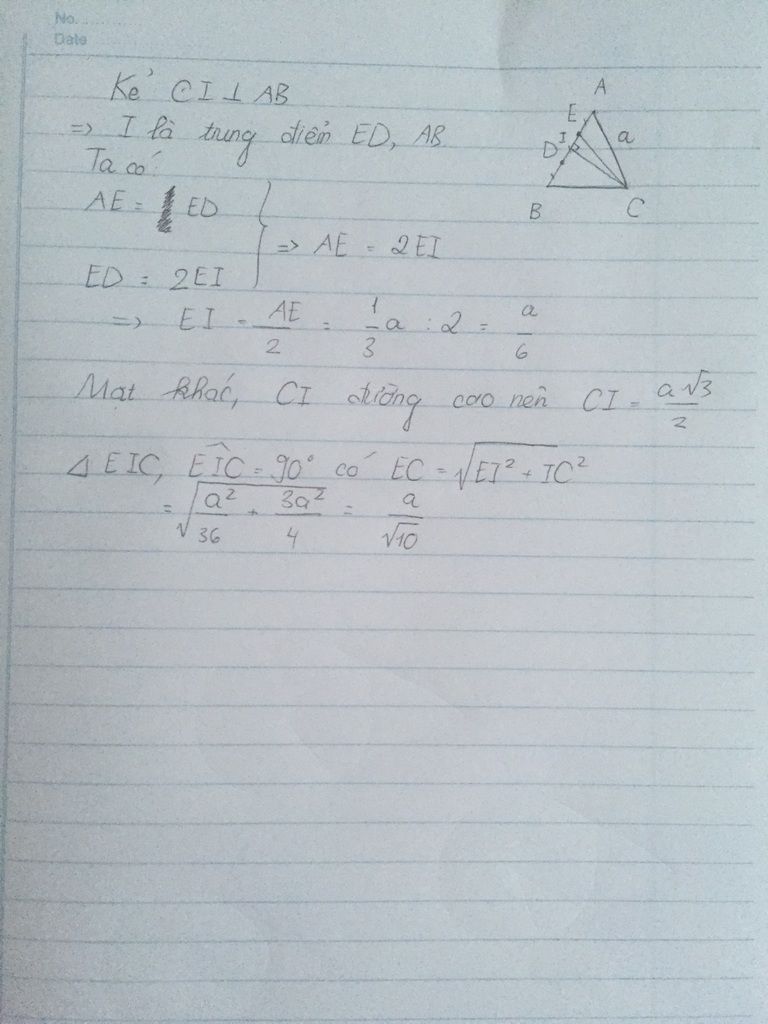 No.
Date
Kẻ CI ⊥ AB
=> I là trung điểm ED, AB
Ta có:
AE = ED
ED = 2EI
=> AE = 2EI
=> EI = AE/2 = 1/3 a : 2 = a/6
Mạt khác, CI đường cao nên CI = a√3/2
Δ EIC, EIC = 90° có EC = √EI² + IC²
= √a²/36 + 3a²/4 = a/√10
A
E
I
D
a
B
C